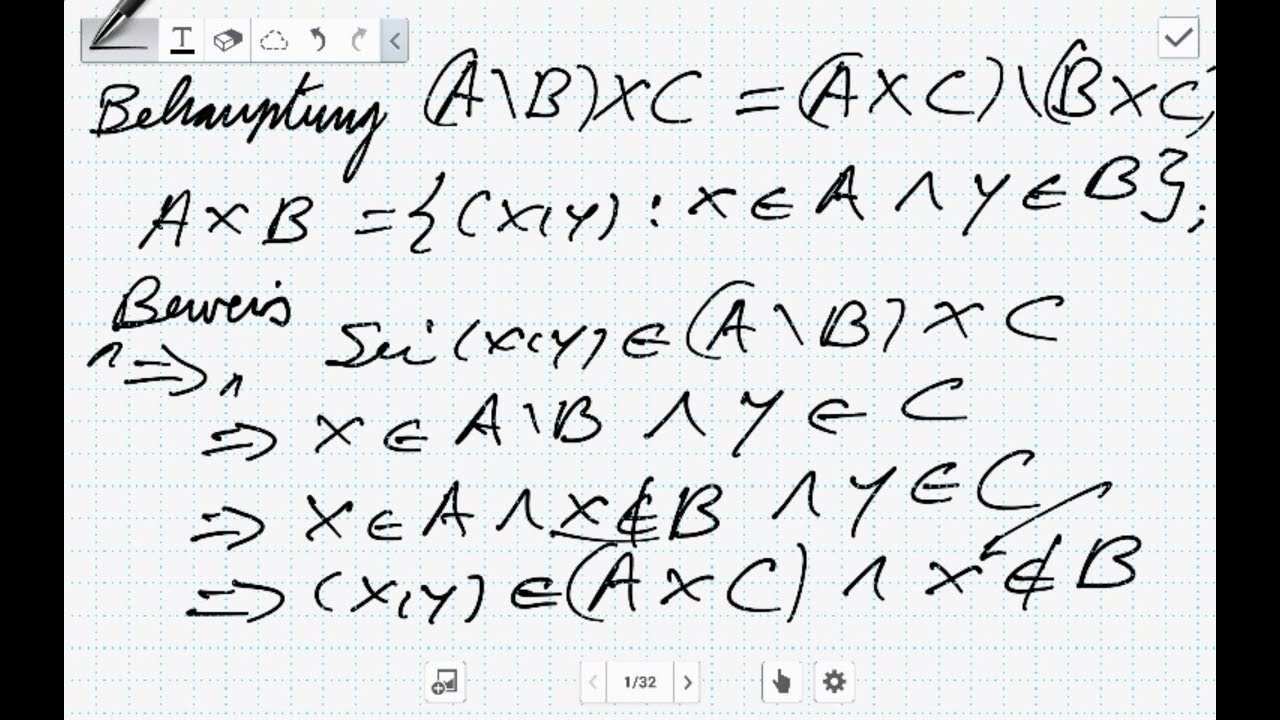 T
Behauptung (A\B)×C = (A×C)\(B×C)
A×B = {(x,y) : x∈A ∧ y∈B};
Beweis
"⇒" Sei (x,y) ∈ (A\B)×C
⇒ x∈A\B ∧ y∈C
⇒ x∈A ∧ x∉B ∧ y∈C
⇒ (x,y) ∈ (A×C) ∧ x∉B
1/32